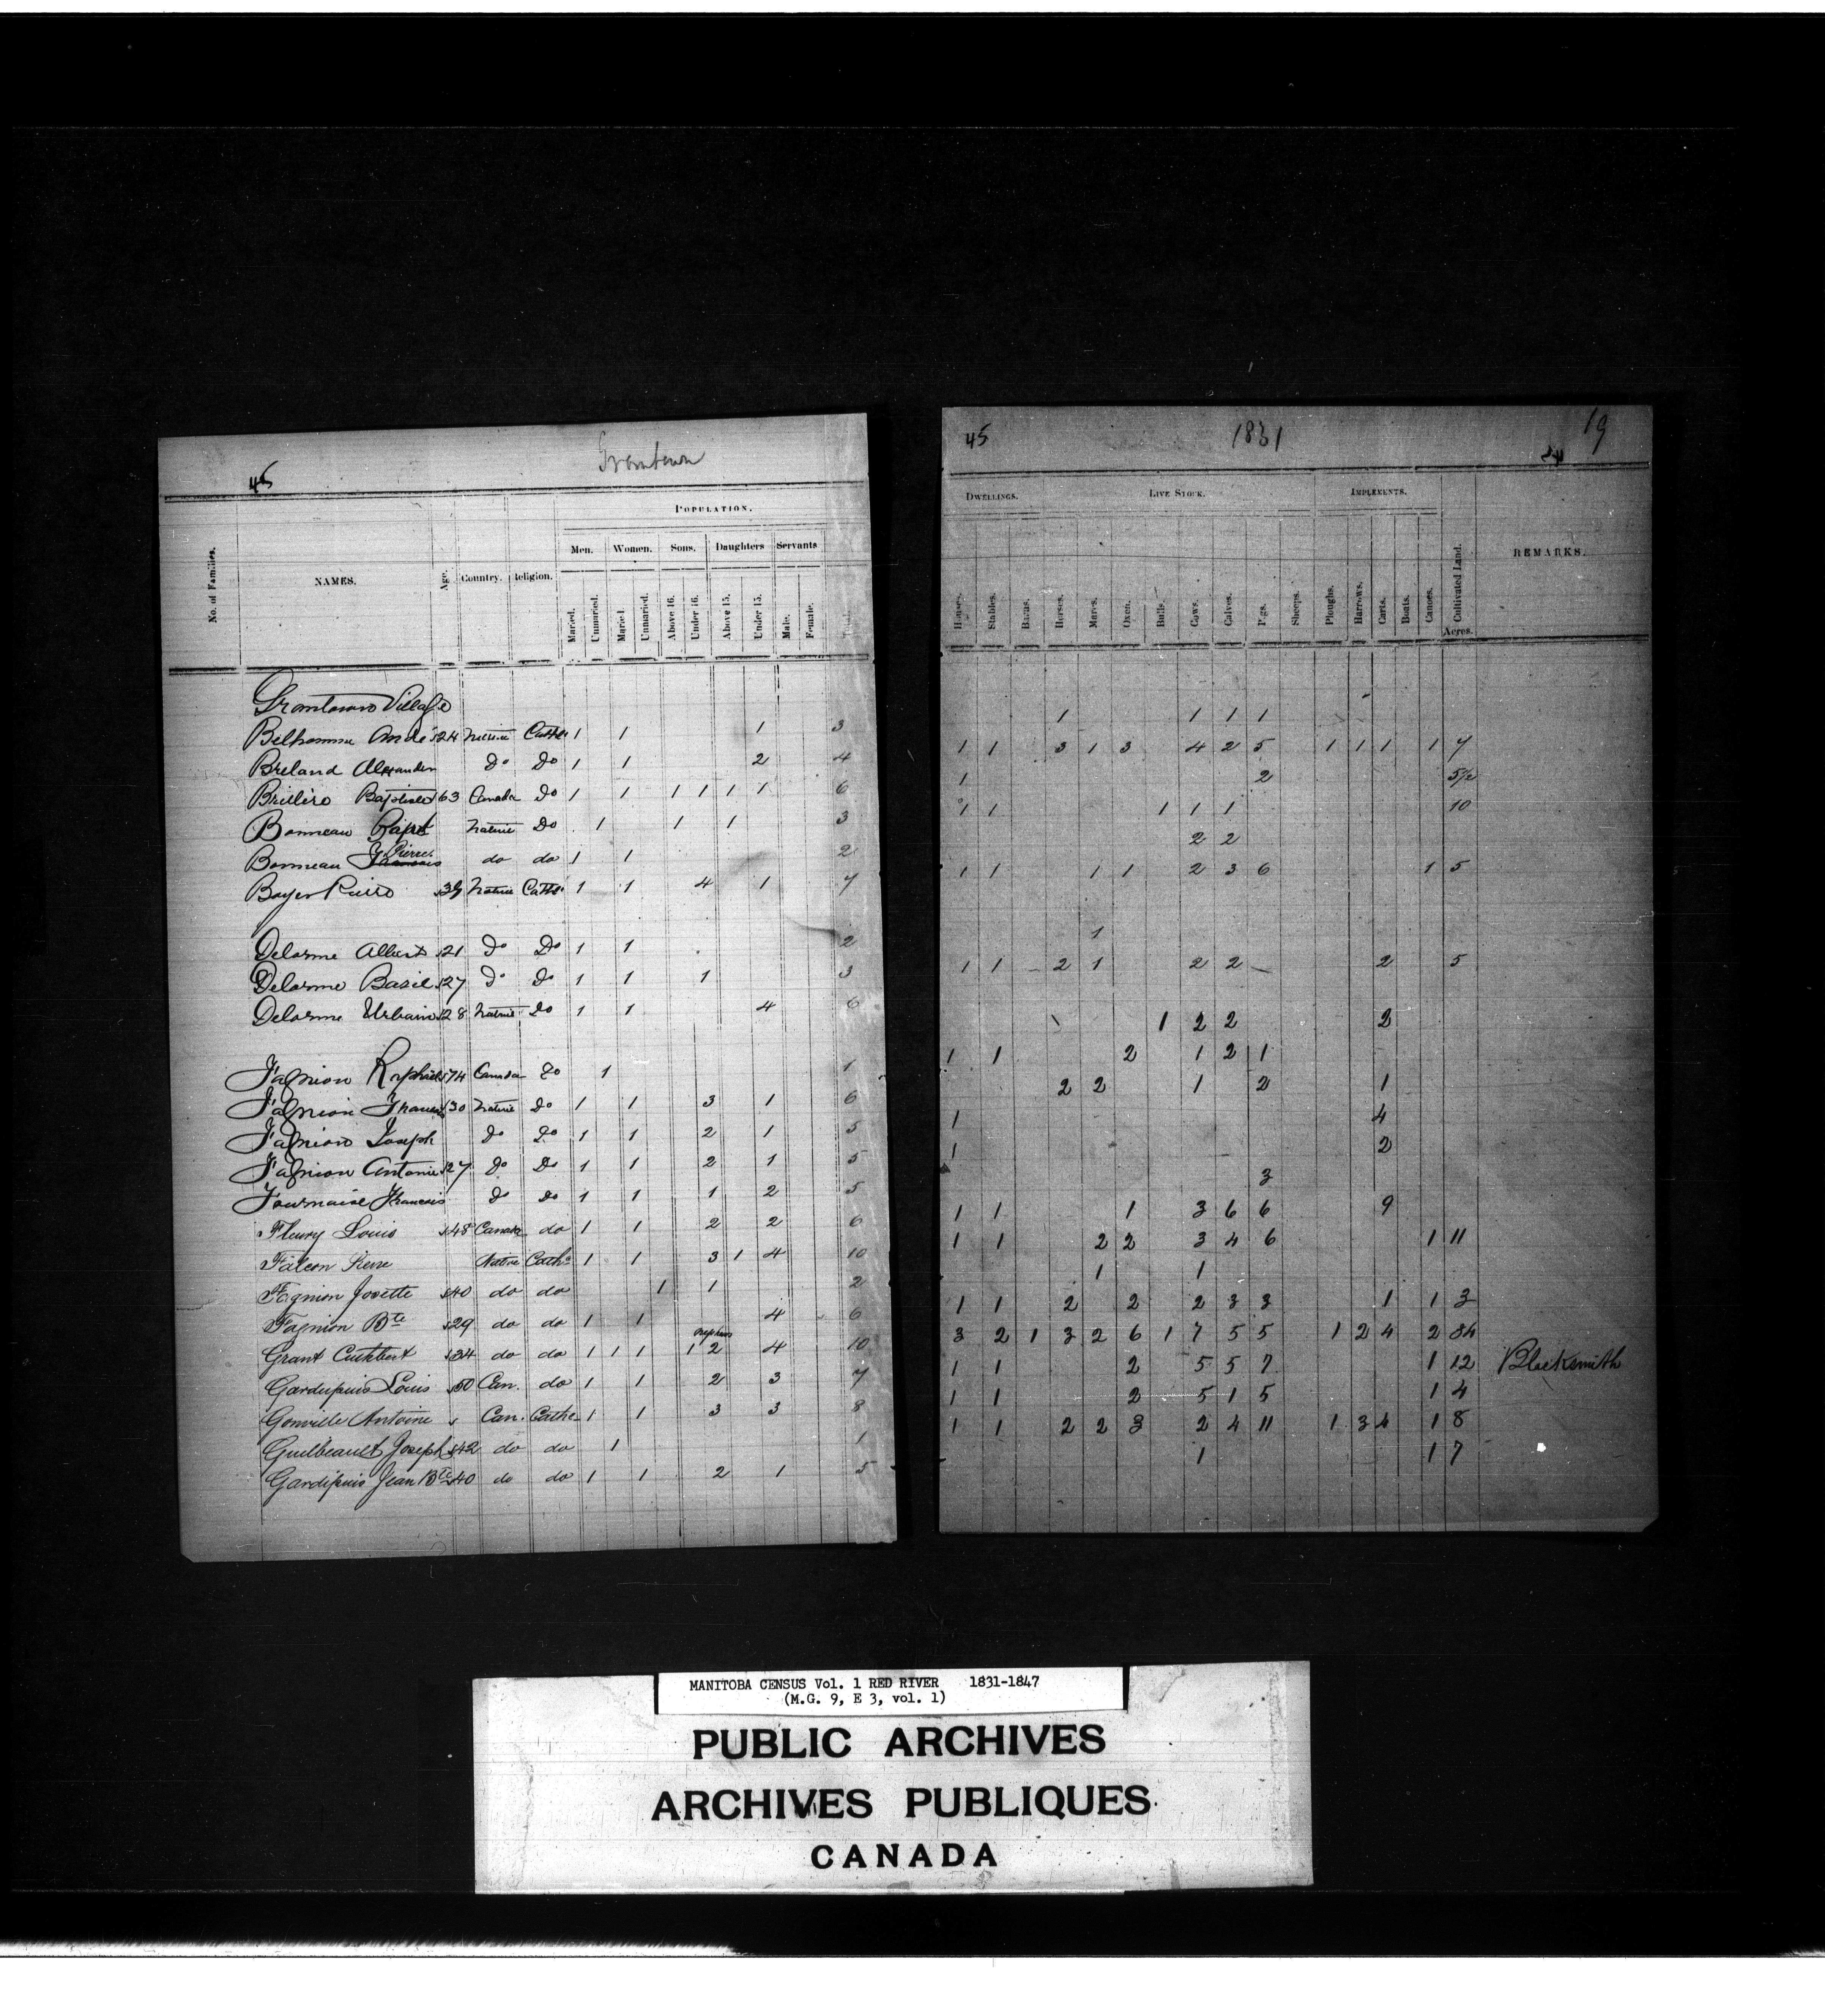 Grantown
45
POPULATION.
No. of Families. NAMES. Age. Country. Religion. Men. Women. Sons. Daughters Servants
Maried. Unmaried. Maried. Unmaried. Above 16. Under 16. Above 15. Under 15. Male. Female. Total.
Grantown Village
Belhomme André 24 Native Cathc 1 1 1 3
Breland Alexander Do Do 1 1 2 4
Brilliéro Baptiste 63 Canada Do 1 1 1 1 1 1 6
Bonneau Bapt Native Do 1 1 1 3
Bonneau Francois Pierre do do 1 1 2
Boyer Pierre Native Cathc 1 1 4 1 7
Delorme Albert 21 Do Do 1 1 2
Delorme Basil 27 Do Do 1 1 1 3
Delorme Urbain 28 Native Do 1 1 4 6
Fagnion Raphael 74 Canada Do 1 1
Fagnion Francois 30 Native Do 1 1 3 1 6
Fagnion Joseph Do Do 1 1 2 1 5
Fagnion Antonie 27 Do Do 1 1 2 1 5
Fournaise Francois Do Do 1 1 1 2 5
Fleury Louis 48 Canada do 1 1 2 2 6
Falcon Pierre Native Cathc 1 1 3 1 4 10
Fagnion Josette 40 do do 1 1 2
Fagnion Bte 29 do do 1 1 4 6
Grant Cuthbert 34 do do 1 1 1 1 orphans 2 4 10
Gardupuis Louis 50 Can. do 1 1 2 3 7
Gonville Antoine Can. Cathc 1 1 3 3 8
Guilbeault Joseph 42 do do 1 1
Gardipuis Jean Bte 40 do do 1 1 2 1 5
45 1831 19
DWELLINGS. LIVE STOCK. IMPLEMENTS.
Houses. Stables. Barns. Horses. Mares. Oxen. Bulls. Cows. Calves. Pigs. Sheeps. Ploughs. Harrows. Carts. Boats. Canoes. Cultivated Land. Acres. REMARKS.
1 1 1 1
1 1 3 1 3 4 2 5 1 1 1 1 7
1 2 5½
1 1 1 1 1 10
2 2
1 1 1 1 2 3 6 1 5
1
1 1 2 1 2 2 2 5
1 2 2 2
1 1 2 1 2 1
2 2 1 2 1
1 4
1 2
3
1 1 1 3 6 6 9
1 1 2 2 3 4 6 1 11
1 1
1 1 2 2 2 3 3 1 1 3
3 2 1 3 2 6 1 7 5 5 1 2 4 2 34
1 1 2 5 5 7 1 12 Blacksmith
1 1 2 5 1 5 1 4
1 1 2 2 3 2 4 11 1 3 4 1 8
1 1 7
MANITOBA CENSUS Vol. 1 RED RIVER 1831-1847
(M.G. 9, E 3, vol. 1)
PUBLIC ARCHIVES
ARCHIVES PUBLIQUES
CANADA